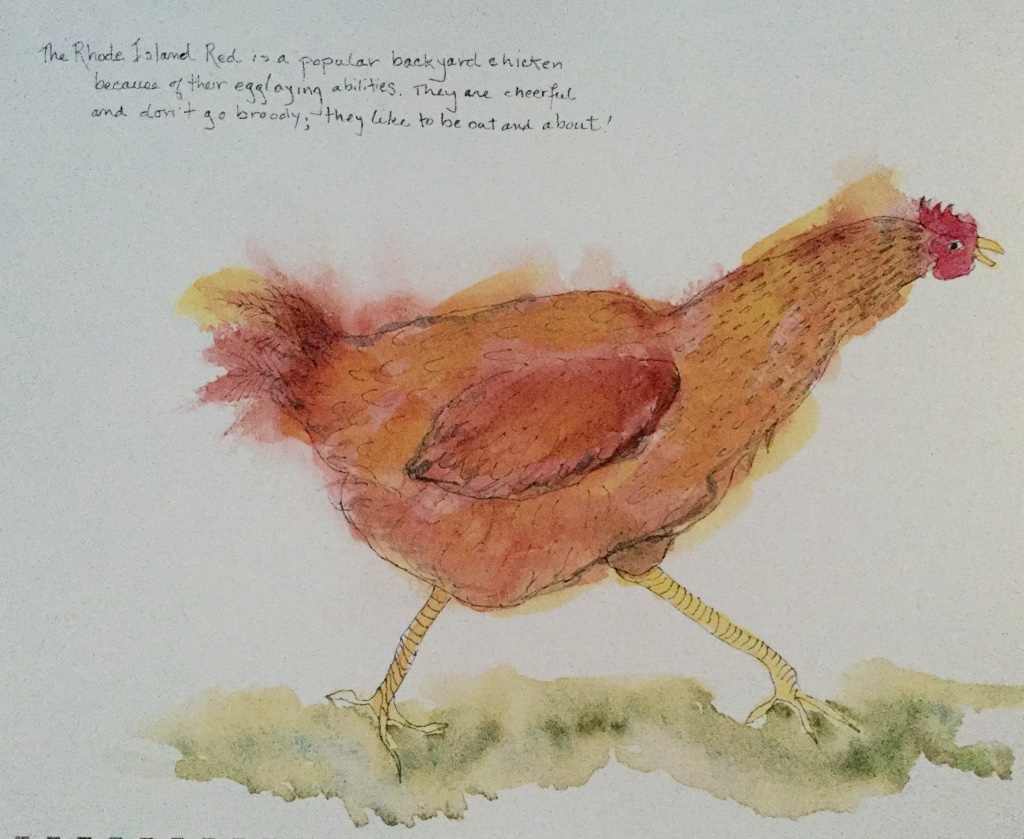 The Rhode Island Red is a popular backyard chicken
because of their egglaying abilities. They are cheerful
and don't go broody; they like to be out and about!